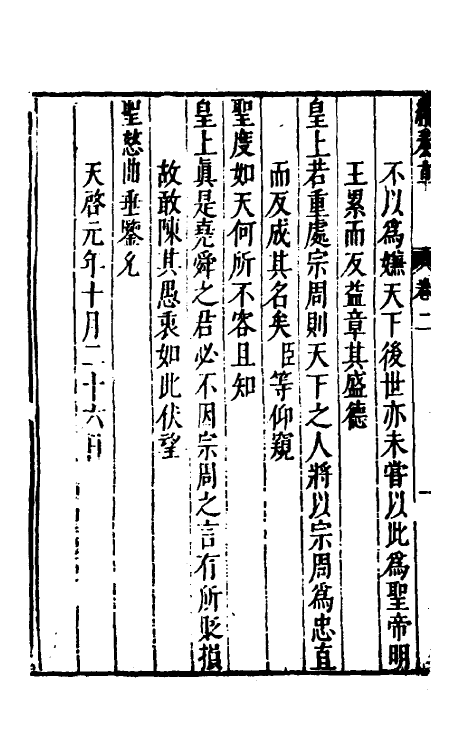 卷二
不以爲嫌天下後世亦未嘗以此爲聖帝明
王累而反益章其盛德
皇上若重處宗周則天下之人將以宗周爲忠直
而反成其名矣臣等仰窺
聖度如天何所不容且知
皇上眞是堯舜之君必不因宗周之言有所貶損
故敢陳其愚衷如此伏望
聖慈曲垂鑒允
天啓元年十月二十六日